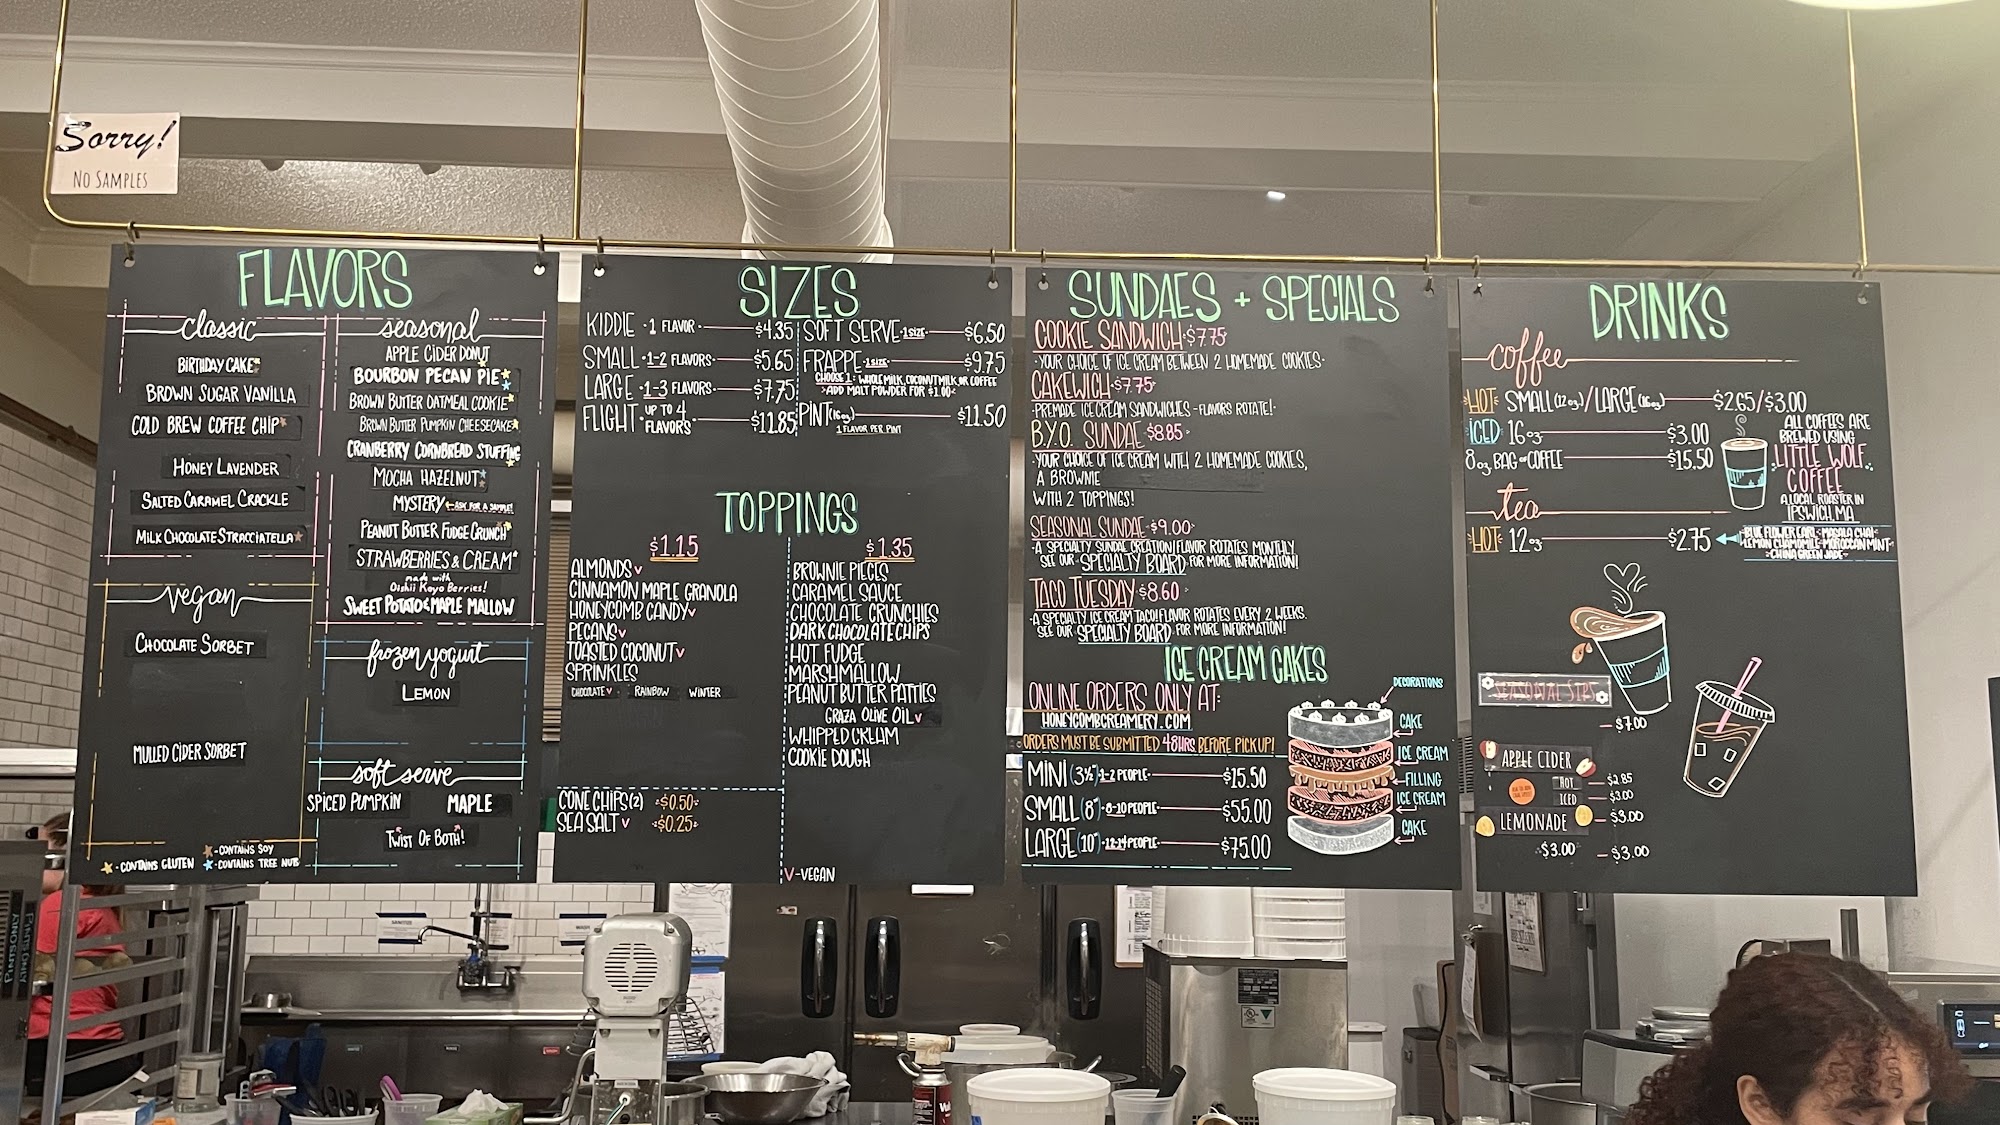 Sorry!
NO SAMPLES
FLAVORS
classic
BIRTHDAY CAKE
BROWN SUGAR VANILLA
COLD BREW COFFEE CHIP
HONEY LAVENDER
SALTED CARAMEL CRACKLE
MILK CHOCOLATE STRACCIATELLA
vegan
CHOCOLATE SORBET
MULLED CIDER SORBET
-CONTAINS GLUTEN
-CONTAINS SOY
-CONTAINS TREE NUTS
seasonal
APPLE CIDER DONUT
BOURBON PECAN PIE
BROWN BUTTER OATMEAL COOKIE
BROWN BUTTER PUMPKIN CHEESECAKE
CRANBERRY CORNBREAD STUFFING
MOCHA HAZELNUT
MYSTERY ←ASK FOR A SAMPLE!
PEANUT BUTTER FUDGE CRUNCH
STRAWBERRIES & CREAM
made with
Oishii Koyo Berries!
SWEET POTATO & MAPLE MALLOW
frozen yogurt
LEMON
soft serve
SPICED PUMPKIN MAPLE
TWIST OF BOTH!
SIZES
KIDDIE · 1 FLAVOR $4.35
SMALL · 1-2 FLAVORS $5.65
LARGE · 1-3 FLAVORS $7.75
FLIGHT · UP TO 4 FLAVORS $11.85
SOFT SERVE · 1 SIZE $6.50
FRAPPE · 1 SIZE $9.75
CHOOSE 1: WHOLE MILK, COCONUT MILK, OR COFFEE
ADD MALT POWDER FOR $1.00
PINT (16oz) $11.50
1 FLAVOR PER PINT
TOPPINGS
$1.15
ALMONDS V
CINNAMON MAPLE GRANOLA
HONEYCOMB CANDY V
PECANS V
TOASTED COCONUT V
SPRINKLES
CHOCOLATE V RAINBOW WINTER
CONE CHIPS (2) $0.50
SEA SALT V $0.25
$1.35
BROWNIE PIECES
CARAMEL SAUCE
CHOCOLATE CRUNCHIES
DARK CHOCOLATE CHIPS
HOT FUDGE
MARSHMALLOW
PEANUT BUTTER PATTIES
GRAZA OLIVE OIL V
WHIPPED CREAM
COOKIE DOUGH
V-VEGAN
SUNDAES + SPECIALS
COOKIE SANDWICH · $7.75
·YOUR CHOICE OF ICE CREAM BETWEEN 2 HOMEMADE COOKIES·
CAKEWICH · $7.75·
·PREMADE ICE CREAM SANDWICHES - FLAVORS ROTATE!·
B.Y.O. SUNDAE · $8.85·
·YOUR CHOICE OF ICE CREAM WITH 2 HOMEMADE COOKIES,
A BROWNIE
WITH 2 TOPPINGS!
SEASONAL SUNDAE · $9.00·
·A SPECIALTY SUNDAE CREATION! FLAVOR ROTATES MONTHLY.
SEE OUR SPECIALTY BOARD FOR MORE INFORMATION!
TACO TUESDAY · $8.60·
·A SPECIALTY ICE CREAM TACO! FLAVOR ROTATES EVERY 2 WEEKS.
SEE OUR SPECIALTY BOARD FOR MORE INFORMATION!
ICE CREAM CAKES
ONLINE ORDERS ONLY AT:
HONEYCOMBCREAMERY.COM
ORDERS MUST BE SUBMITTED 48HRS BEFORE PICKUP!
MINI (3½") · 1-2 PEOPLE $15.50
SMALL (8") · 8-10 PEOPLE $55.00
LARGE (10") · 12-14 PEOPLE $75.00
DECORATIONS
CAKE
ICE CREAM
FILLING
ICE CREAM
CAKE
DRINKS
coffee
HOT SMALL (12oz)/LARGE (16oz) $2.65/$3.00
ICED 16oz $3.00
8oz BAG OF COFFEE $15.50
ALL COFFEES ARE
BREWED USING
LITTLE WOLF
COFFEE
A LOCAL ROASTER IN
IPSWICH, MA
tea
HOT 12oz $2.75
BLUE FLOWER EARL · MASALA CHAI
LEMON CHAMOMILE · MOROCCAN MINT
CHINA GREEN JADE
SEASONAL SIPS
$7.00
APPLE CIDER
HOT $2.85
ICED $3.00
LEMONADE $3.00
$3.00 $3.00